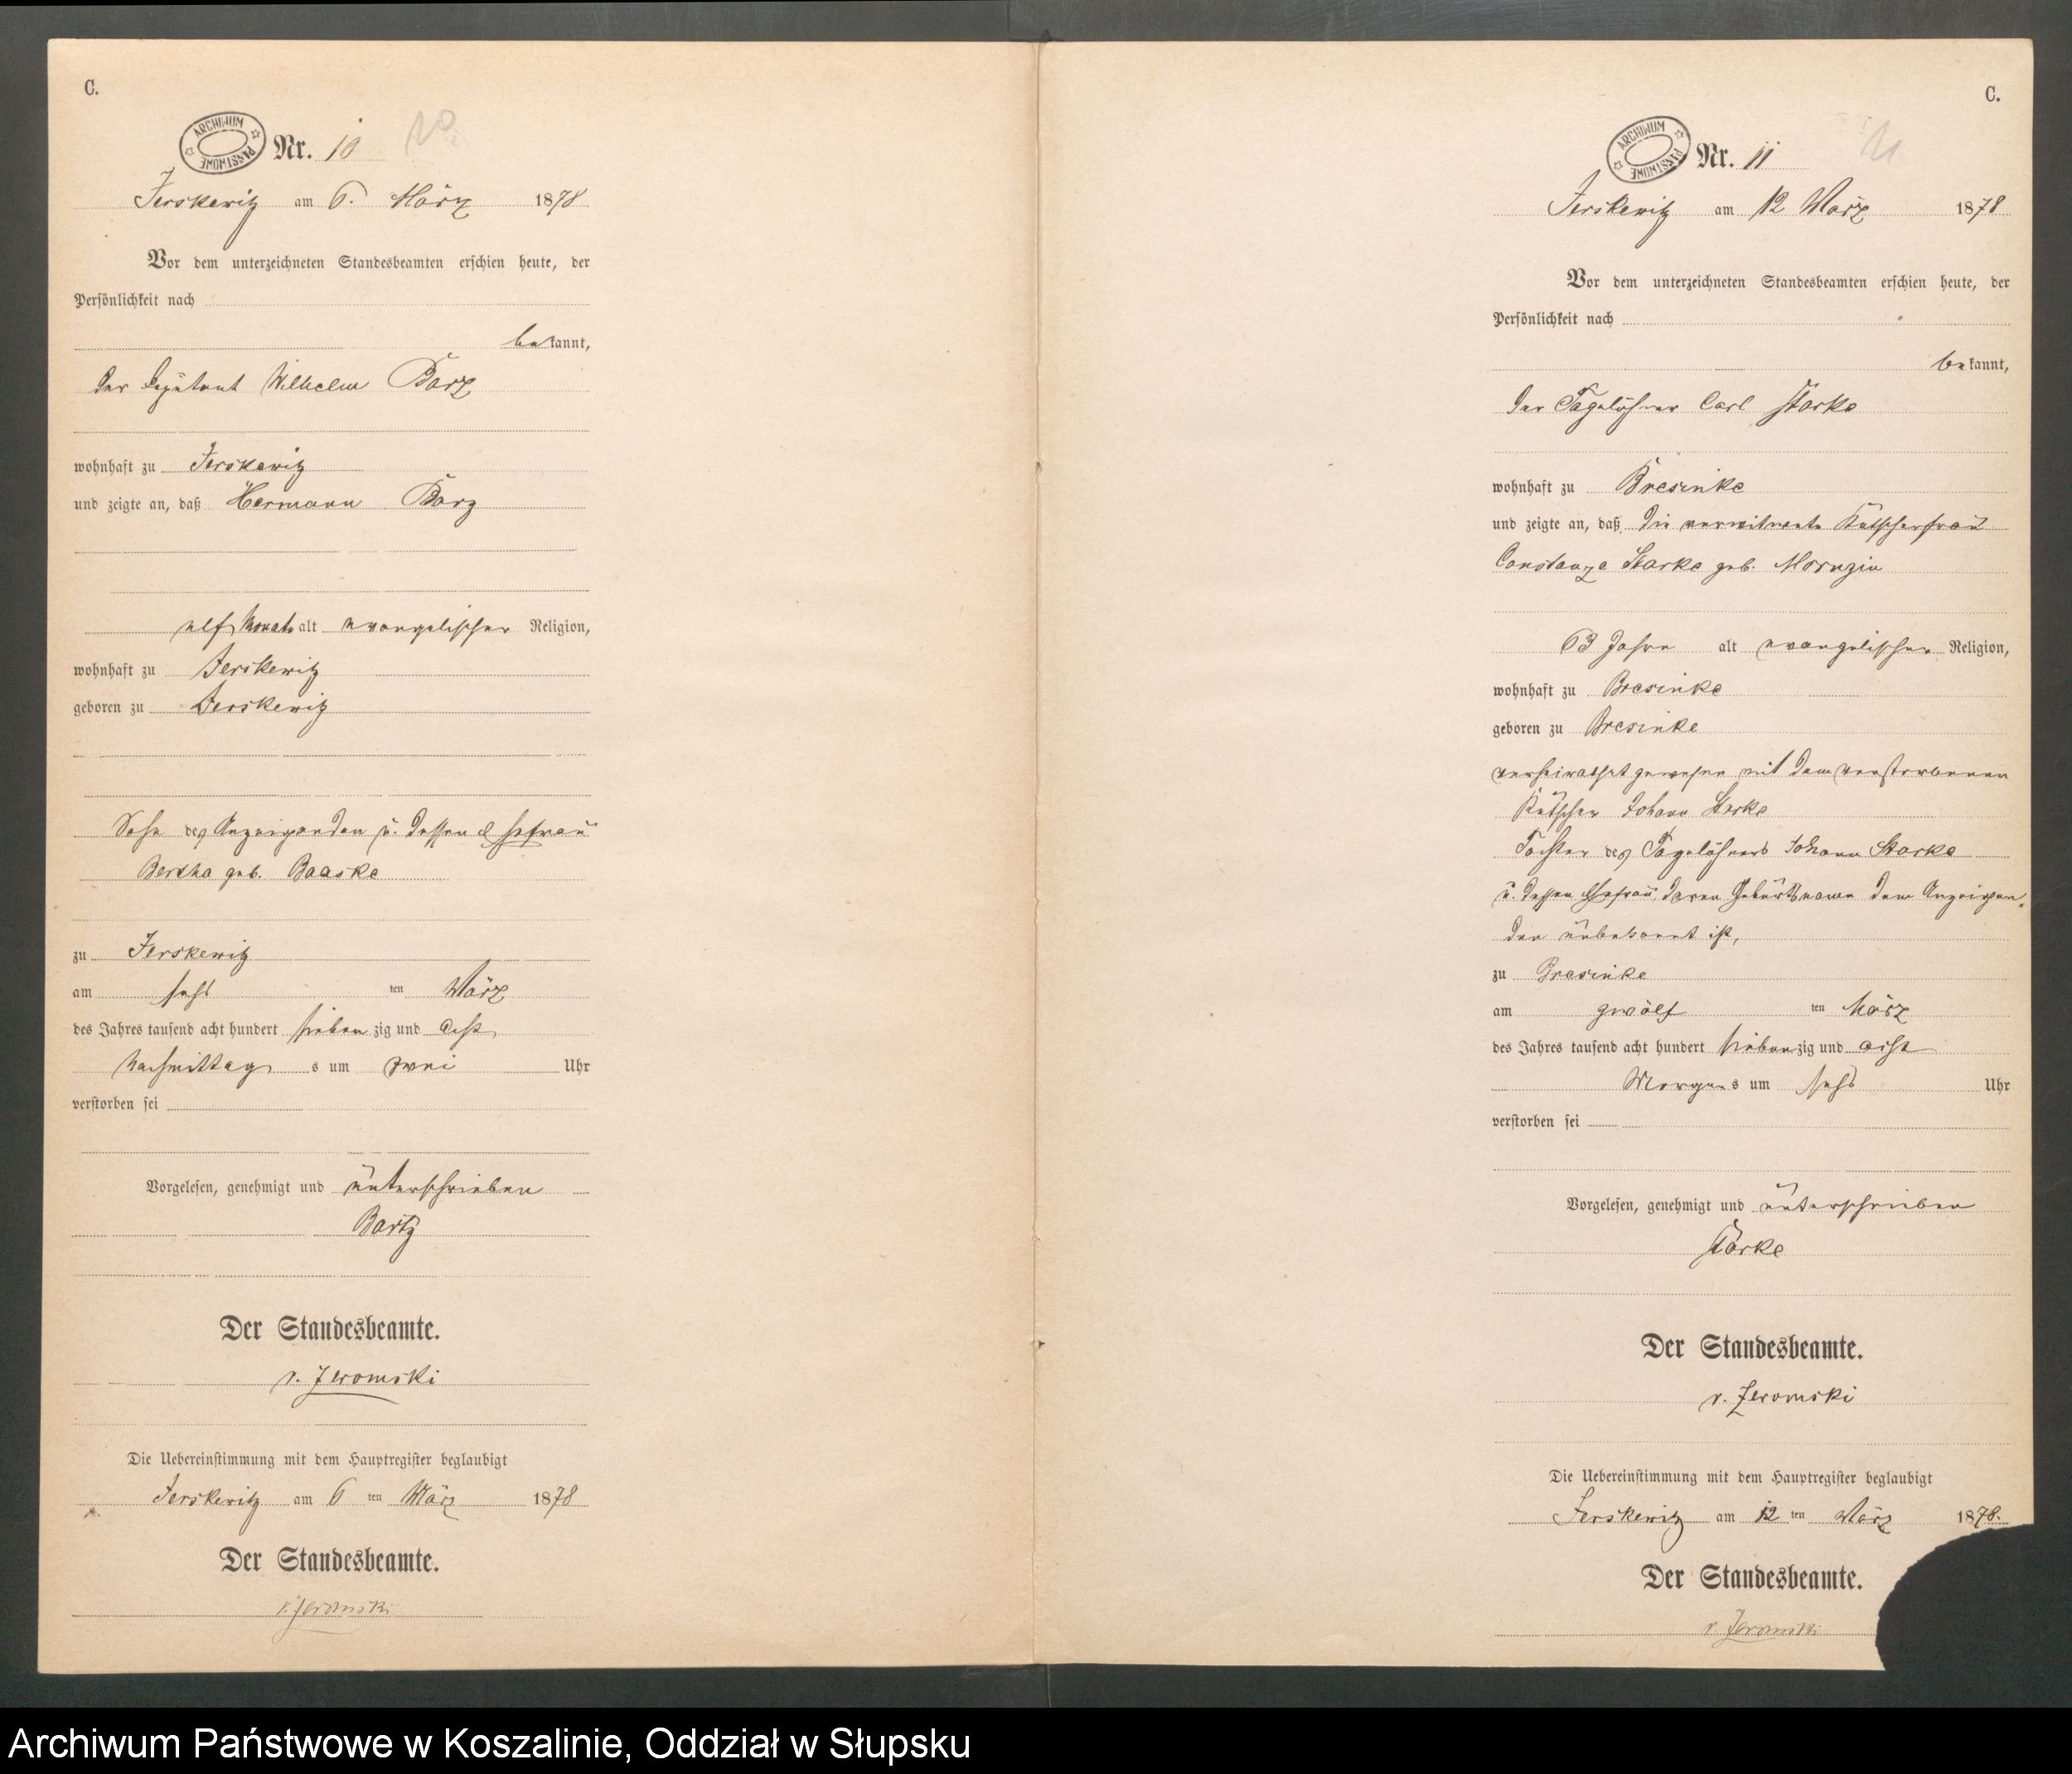 C.
ARCHIWUM PAŃSTWOWE
Nr. 10
10
Jerskewitz am 6. März 1878
Vor dem unterzeichneten Standesbeamten erschien heute, der
Persönlichkeit nach
bekannt,
der Deputant Wilhelm Barz
wohnhaft zu Jerskewitz
und zeigte an, daß Hermann Barz
elf Monate alt evangelischer Religion,
wohnhaft zu Jerskewitz
geboren zu Jerskewitz
Sohn des Anzeigenden u. dessen Ehefrau
Bertha geb. Baaske
zu Jerskewitz
am sechs ten März
des Jahres tausend acht hundert siebenzig und acht
Nachmittags um zwei Uhr
verstorben sei
Vorgelesen, genehmigt und unterschrieben
Bartz
Der Standesbeamte.
v. Zeromski
Die Uebereinstimmung mit dem Hauptregister beglaubigt
Jerskewitz am 6 ten März 1878
Der Standesbeamte.
v. Zeromski
C.
ARCHIWUM PAŃSTWOWE
Nr. 11
11
Jerskewitz am 12 März 1878
Vor dem unterzeichneten Standesbeamten erschien heute, der
Persönlichkeit nach
bekannt,
der Tagelöhner Carl Starke
wohnhaft zu Bresinke
und zeigte an, daß die verwitwete Kutscherfrau
Constanze Starke geb.
63 Jahre alt evangelischer Religion,
wohnhaft zu Bresinke
geboren zu Bresinke
verheirathet gewesen mit dem verstorbenen
Kutscher Johann Starke
Tochter des Tagelöhners Johann Starke
u. dessen Ehefrau, deren Geburtsname dem Anzeigen-
den unbekannt ist,
zu Bresinke
am zwölf ten März
des Jahres tausend acht hundert siebenzig und acht
Morgens um sechs Uhr
verstorben sei
Vorgelesen, genehmigt und unterschrieben
Starke
Der Standesbeamte.
v. Zeromski
Die Uebereinstimmung mit dem Hauptregister beglaubigt
Jerskewitz am 12 ten März 1878.
Der Standesbeamte.
v. Zeromski
Archiwum Państwowe w Koszalinie, Oddział w Słupsku